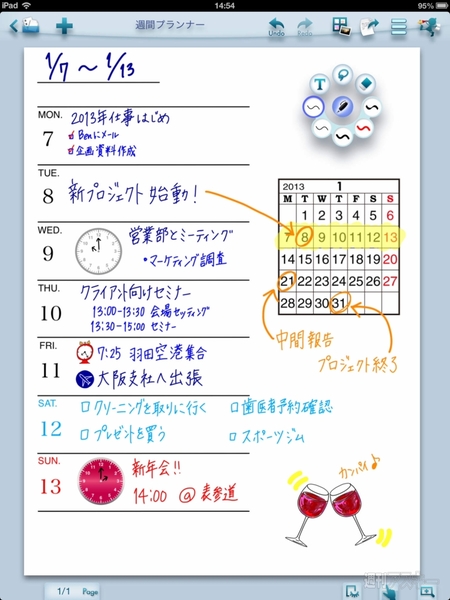 iPad
14:54
95%
週間プランナー
Undo
Redo
1/7 ～ 1/13
MON.
7
2013年仕事はじめ
Benにメール
企画資料作成
TUE.
8
新プロジェクト始動！
WED.
9
営業部とミーティング
・マーケティング調査
THU.
10
クライアント向けセミナー
13:00-13:30 会場セッティング
13:30-15:00 セミナー
FRI.
11
7:25 羽田空港集合
大阪支社へ出張
SAT.
12
□クリーニングを取りに行く □歯医者予約確認
□プレゼントを買う □スポーツジム
SUN.
13
新年会!!
14:00 @表参道
T
2013 1
M T W T F S S
1 2 3 4 5 6
7 8 9 10 11 12 13
14 15 16 17 18 19 20
21 22 23 24 25 26 27
28 29 30 31
中間報告
プロジェクト終了
カンパイ♪
1/1 Page
週刊アスキー